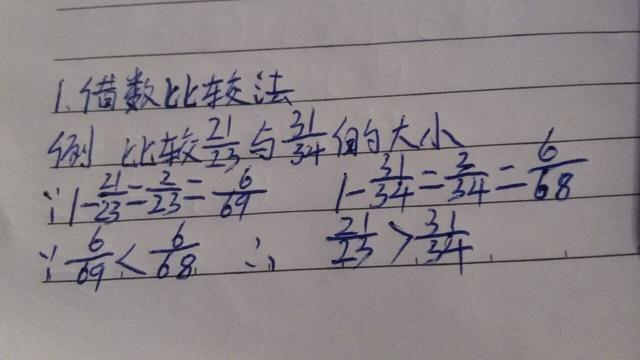 1.借数比较法
例 比较21/23与31/34的大小
∵1-21/23=2/23=6/69 1-31/34=3/34=6/68
∵6/69<6/68 ∴ 21/23>31/34